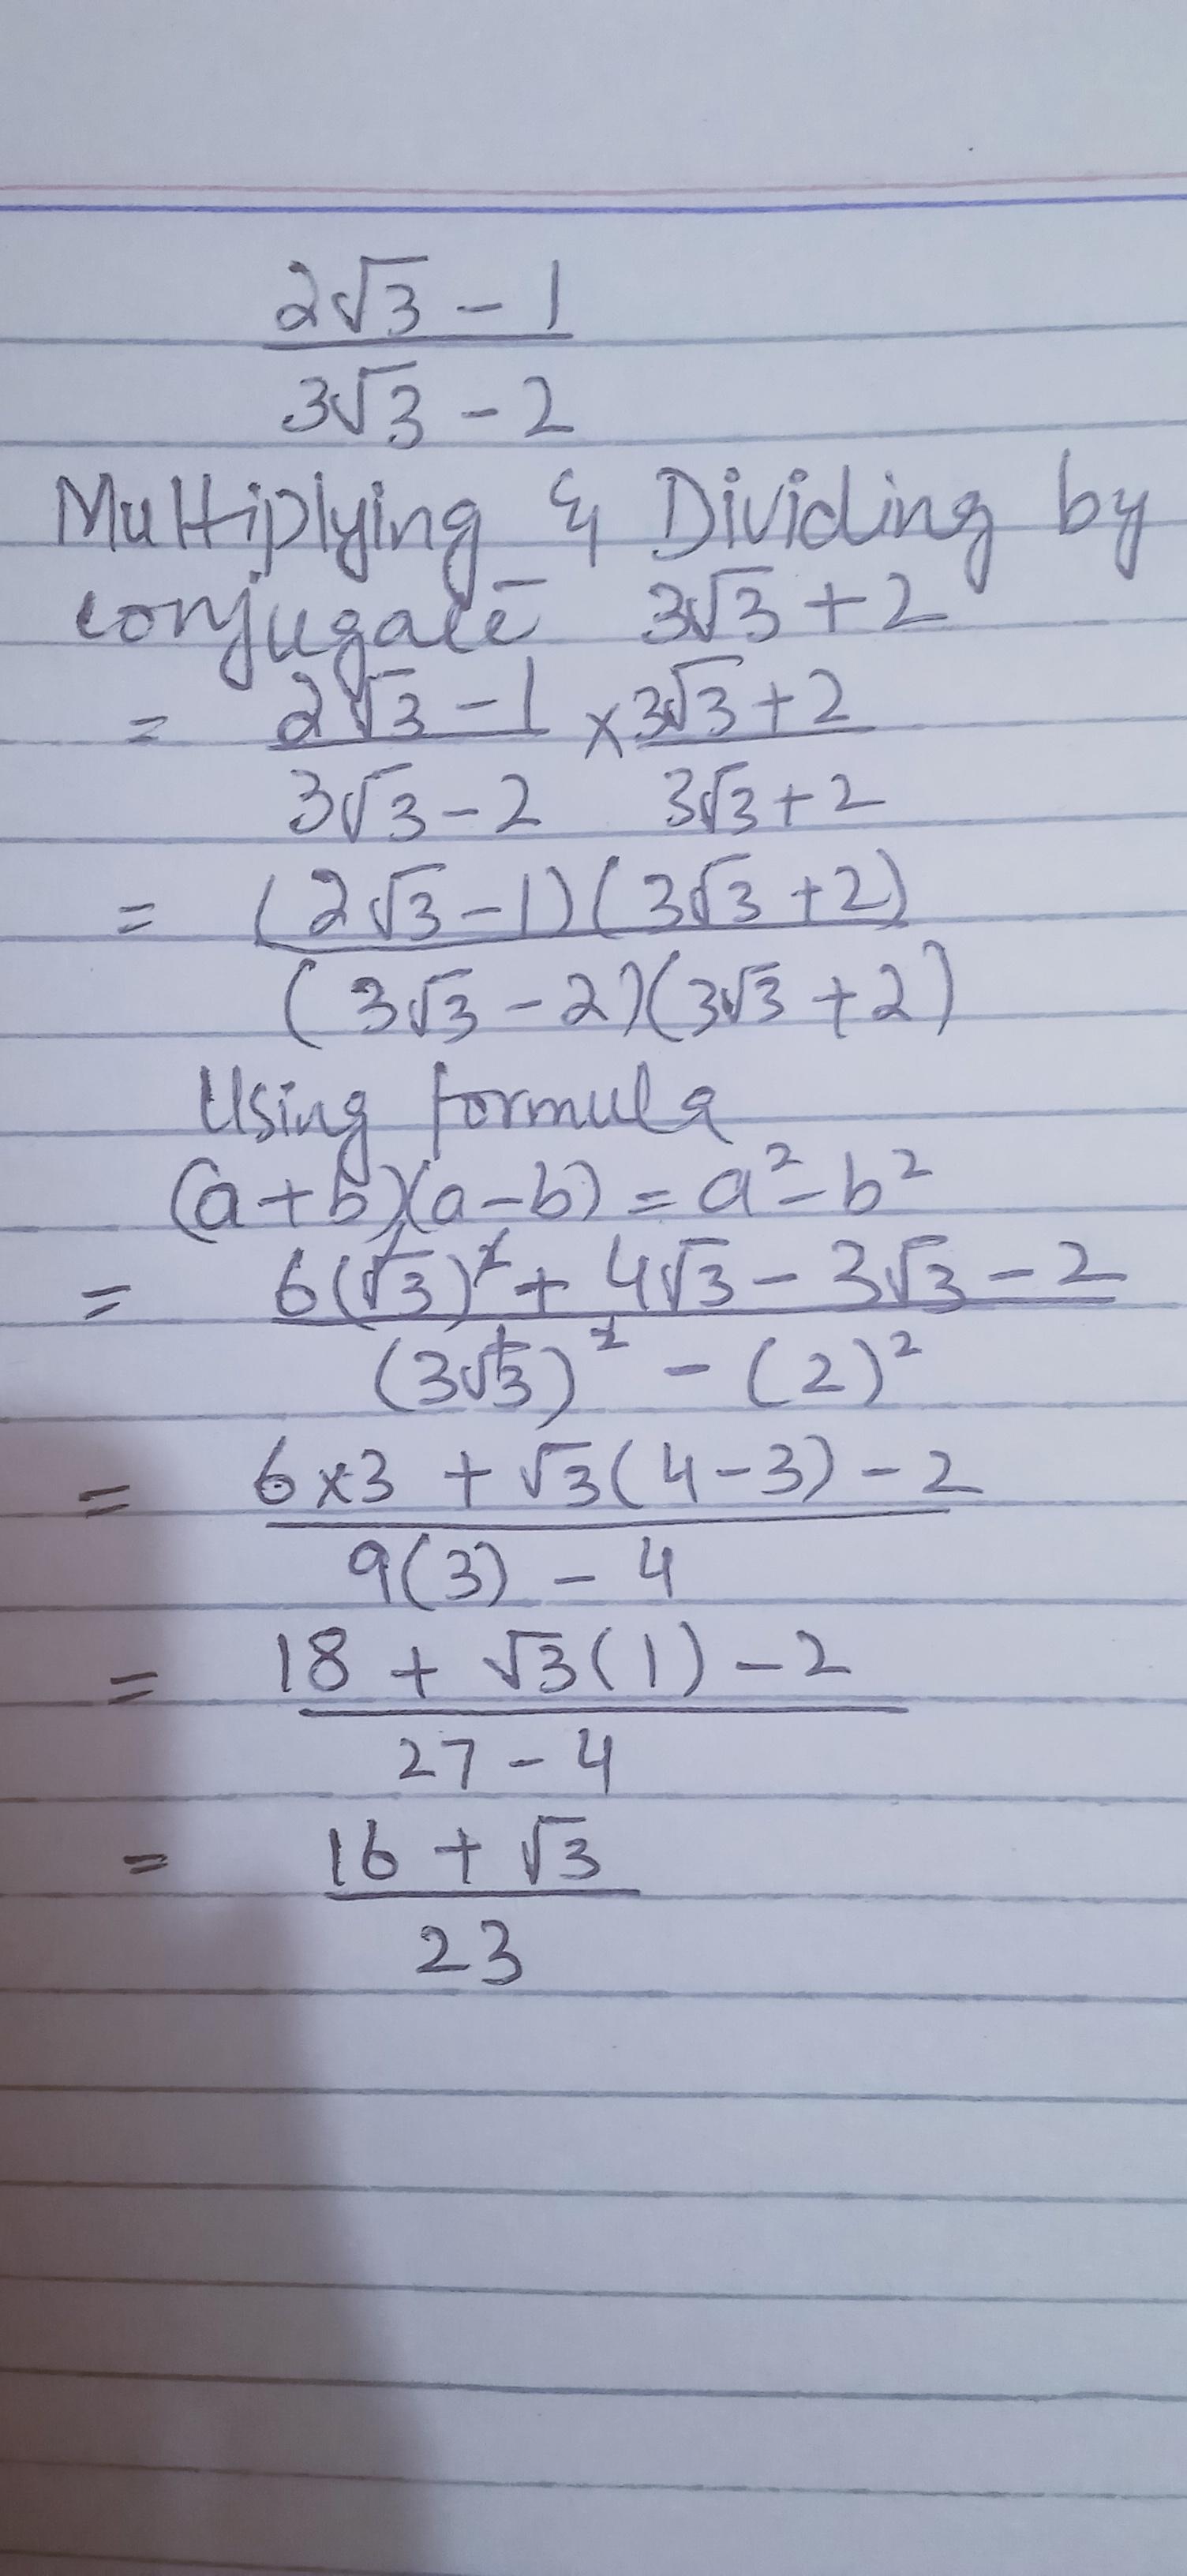 2√3 - 1
3√3 - 2
Multiplying & Dividing by
conjugate 3√3 + 2
= 2√3 - 1 × 3√3 + 2
3√3 - 2 3√3 + 2
= (2√3 - 1)(3√3 + 2)
(3√3 - 2)(3√3 + 2)
Using formula
(a + b)(a - b) = a² - b²
= 6(√3)² + 4√3 - 3√3 - 2
(3√3)² - (2)²
= 6×3 + √3(4 - 3) - 2
9(3) - 4
= 18 + √3(1) - 2
27 - 4
= 16 + √3
23